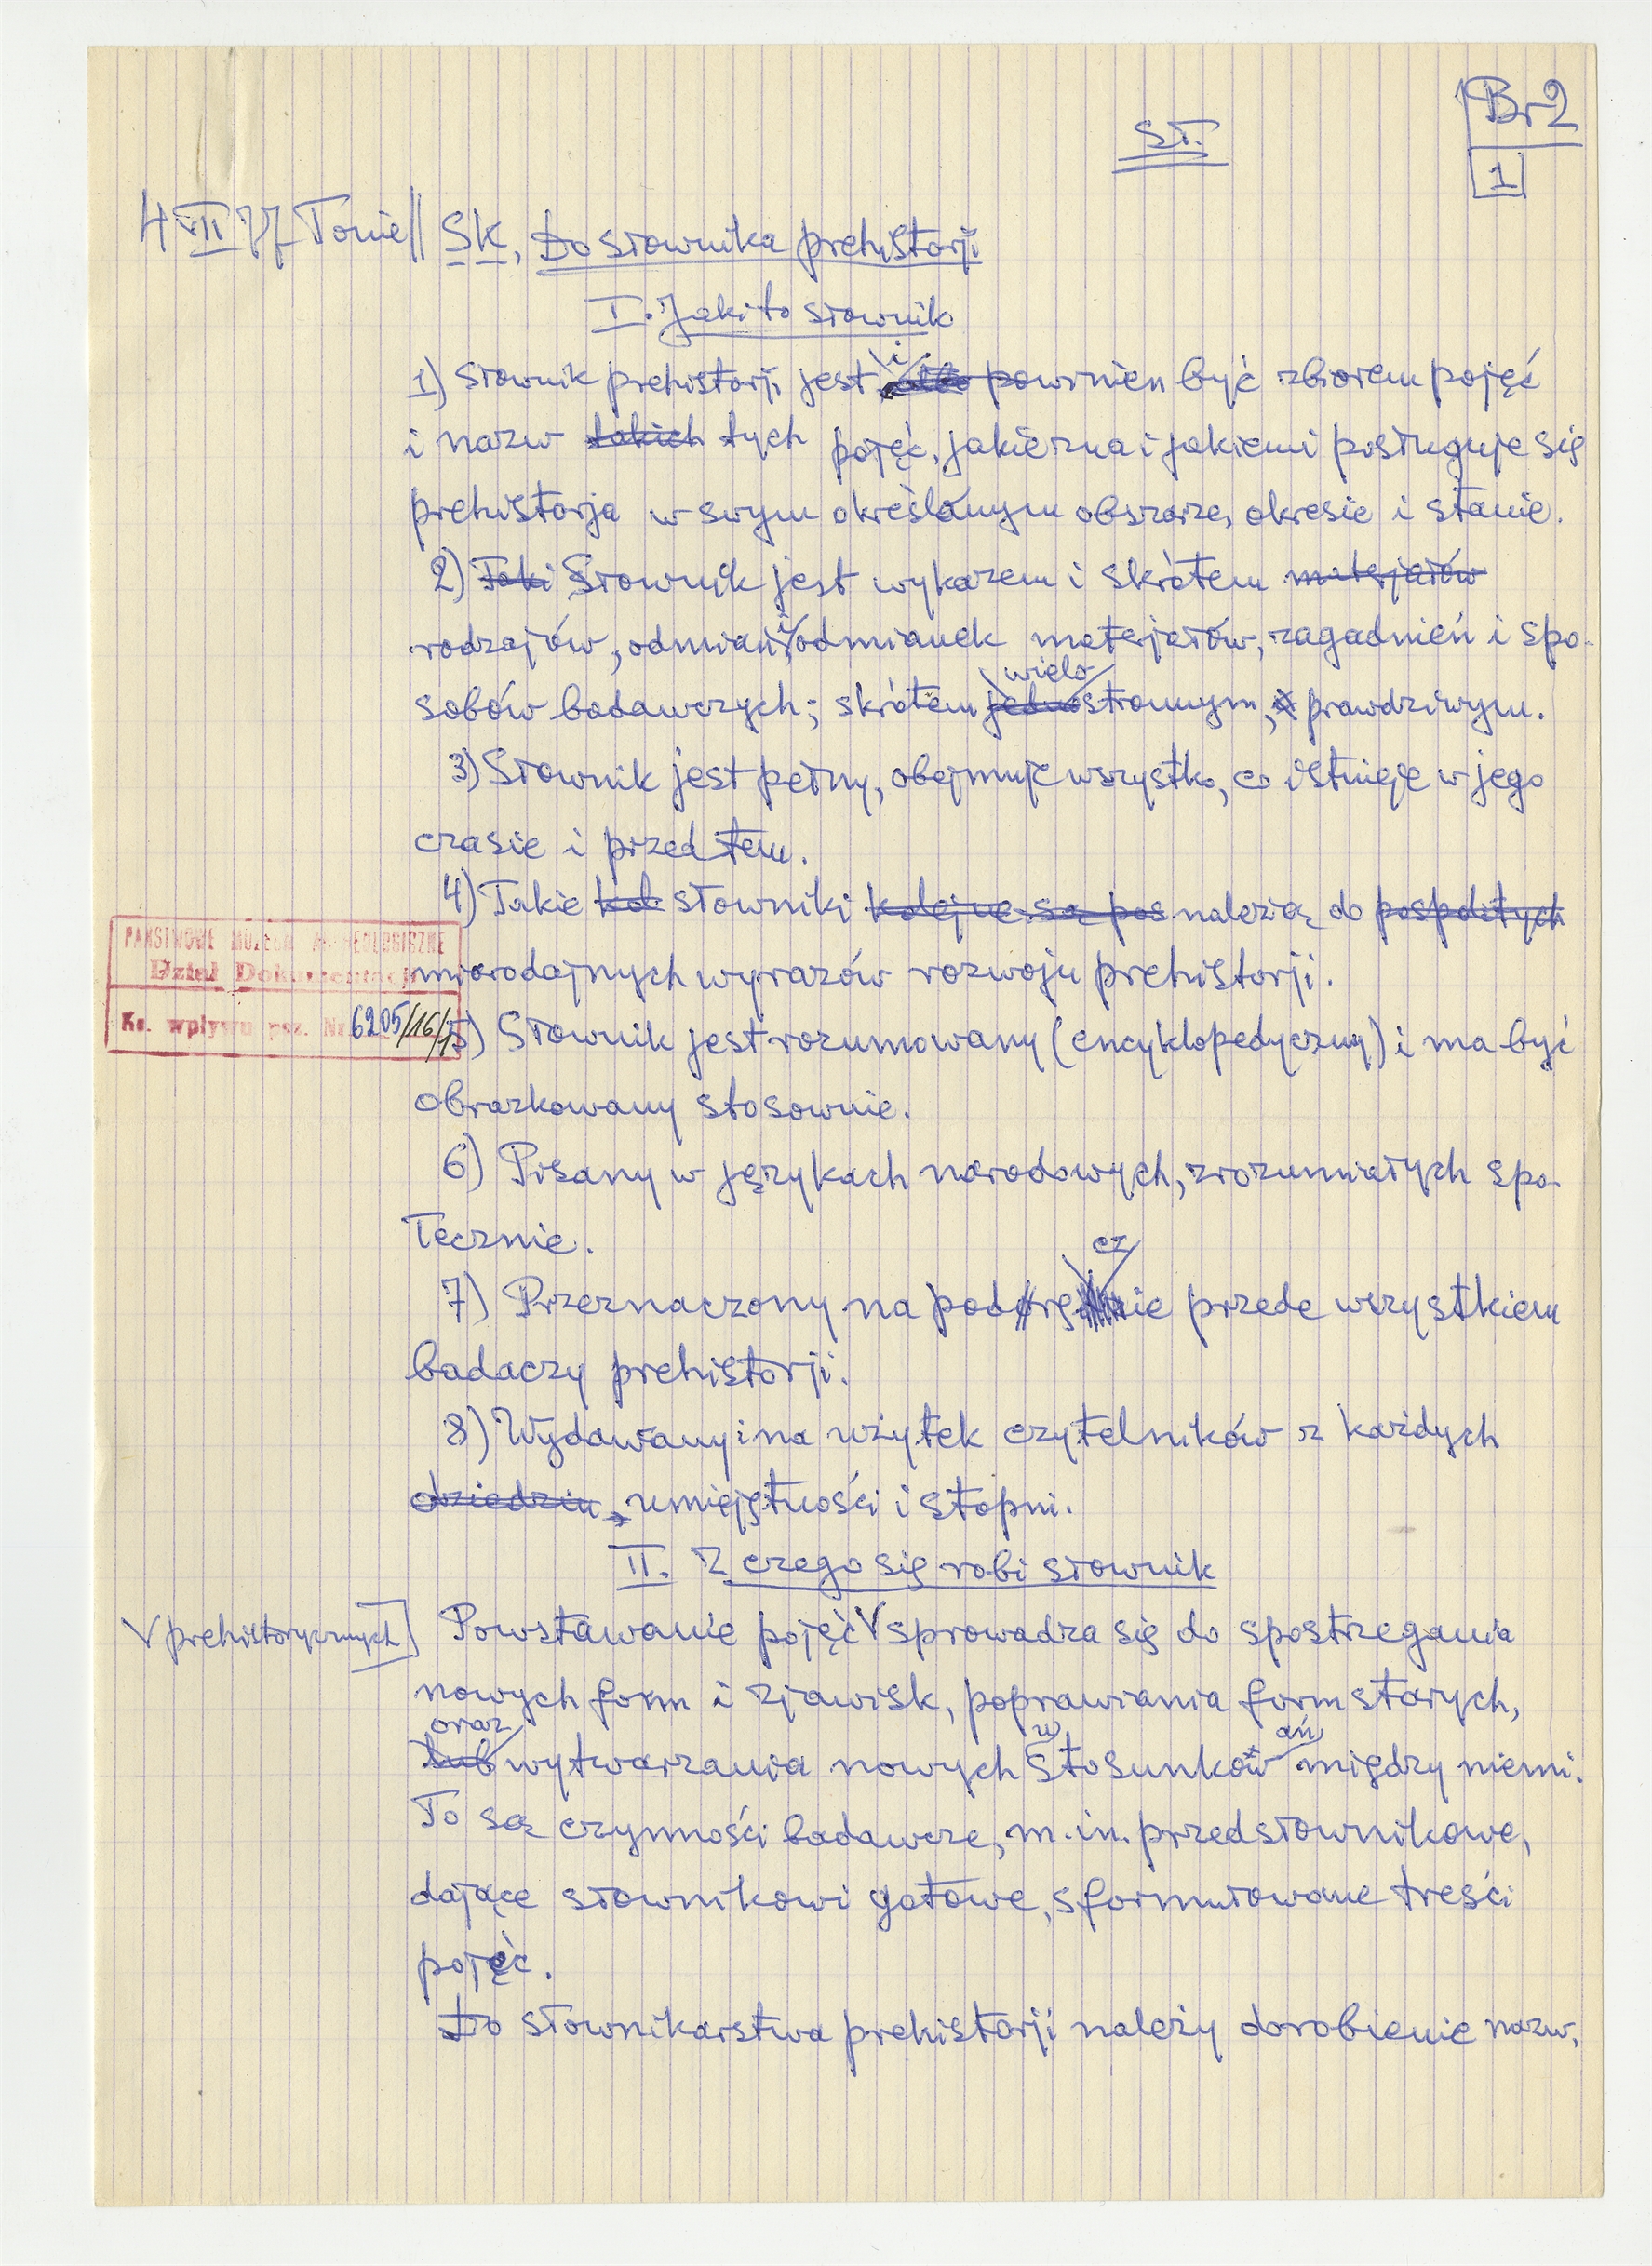 Br2
SŁ.
1
4 VII 77 Tonie || SK, Do słownika prehistorji
I. Jaki to słownik
1) Słownik prehistorji jest i powinien być zbiorem pojęć
i nazw takich tych pojęć, jakie zna i jakiemi posługuje się
prehistorja w swym określonym obszarze, okresie i stanie.
2) Taki Słownik jest wykazem i skrótem materjałów
rodzajów, odmian i odmianek materjałów, zagadnień i spo-
sobów badawczych; skrótem jednostronnym wielo, prawdziwym.
3) Słownik jest pełny, obejmuje wszystko, co istnieje w jego
czasie i przed tem.
4) Takie kol słowniki kolejne są pos należą do pospolitych
miarodajnych wyrazów rozwoju prehistorji.
PAŃSTWOWE MUZEUM ARCHEOLOGICZNE
Dział Dokumentacji
Ks. wpływu poz. Nr 6205/16/1
5) Słownik jest rozumowany (encyklopedyczny) i ma być
obrazkowany stosownie.
6) Pisany w językach narodowych, zrozumiałych spo-
łecznie.
7) Przeznaczony na podręcznie przede wszystkiem
badaczy prehistorji.
8) Wydawany i na użytek czytelników z każdych
dziedzin, umiejętności i stopni.
II. Z czego się robi słownik
V prehistorycznych
Powstawanie pojęć V sprowadza się do spostrzegania
nowych form i zjawisk, poprawiania form starych,
oraz
lub wytwarzania nowych stosunków ań między niemi.
To są czynności badawcze, m.in. przedsłownikowe,
dające słownikowi gotowe, sformułowane treści
pojęć.
Do słownikarstwa prehistorji należy dorobienie nazw,